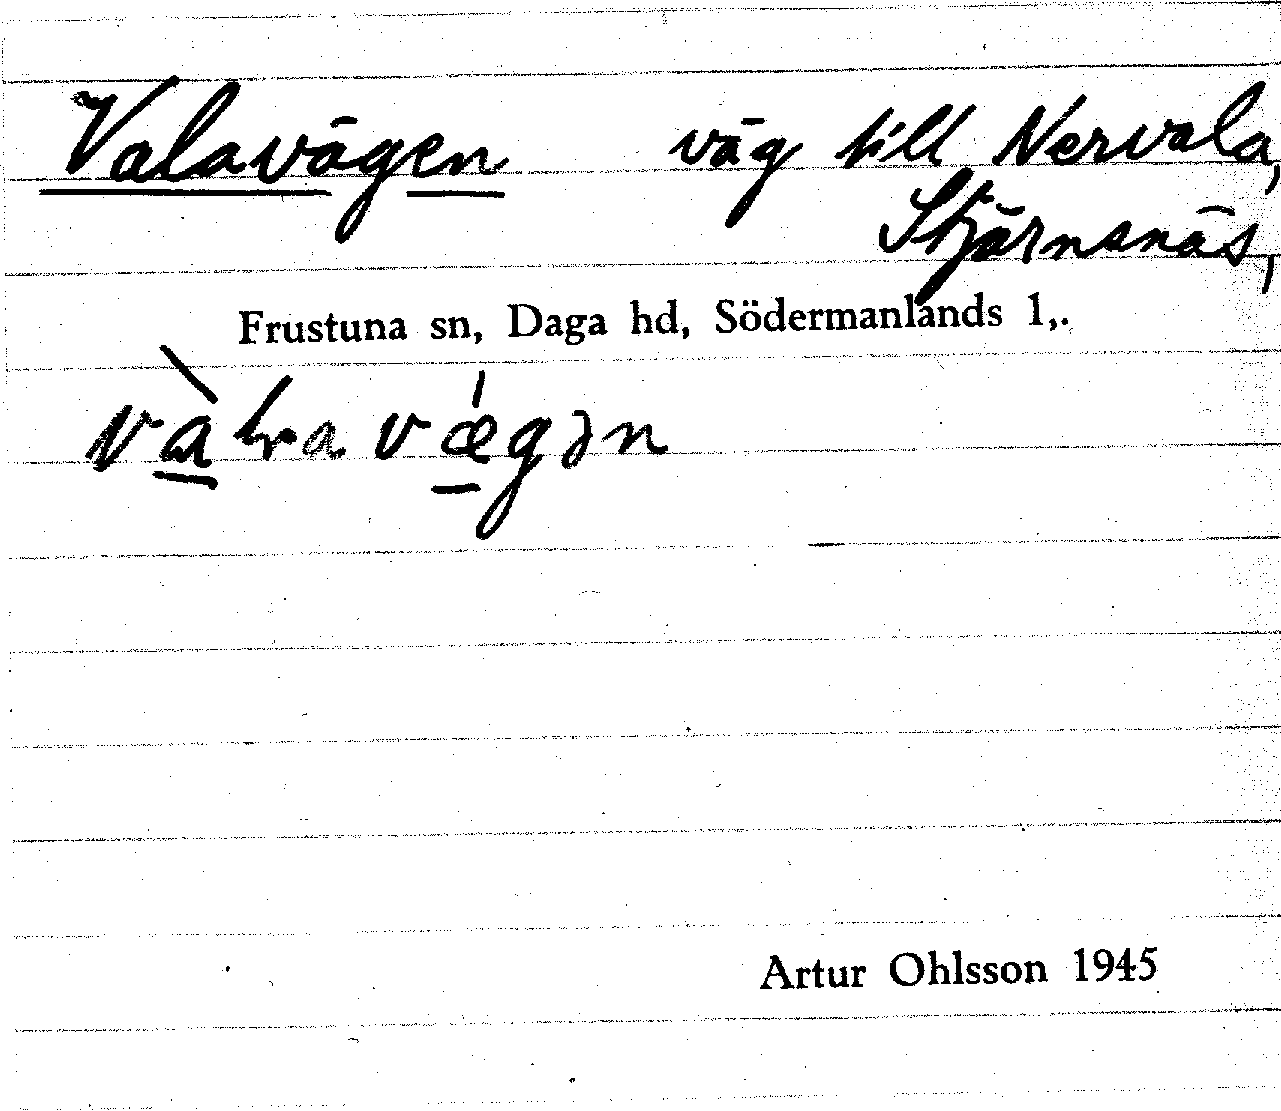 Valavägen väg till Nervala,
Stjärnsnäs,
Frustuna sn, Daga hd, Södermanlands l,.
Artur Ohlsson 1945